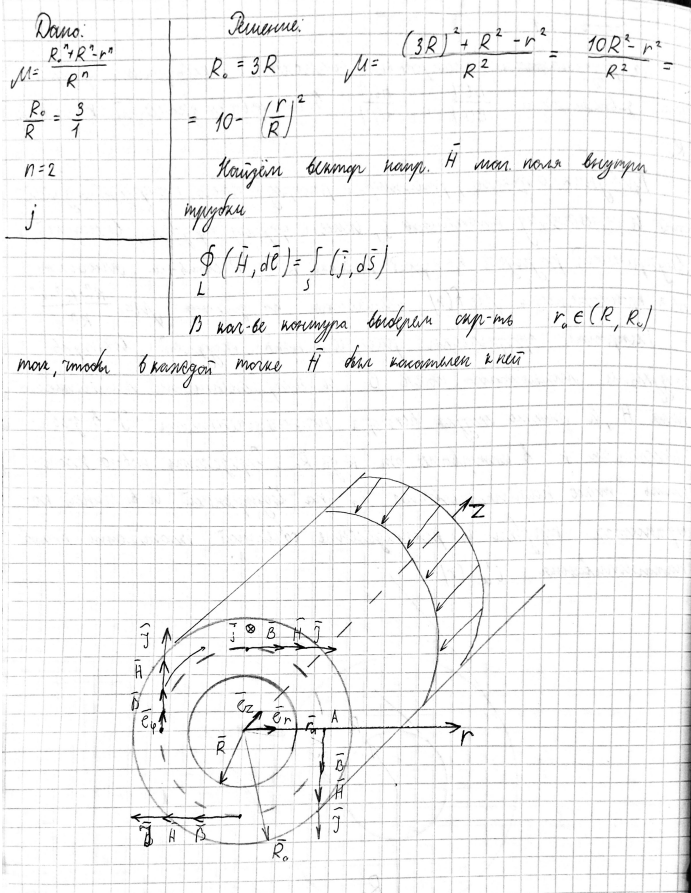 Дано:
μ = (R₀ⁿ + Rⁿ - rⁿ) / Rⁿ
R₀/R = 3/1
n = 2
j
Решение:
R₀ = 3R μ = ((3R)² + R² - r²) / R² = (10R² - r²) / R² =
= 10 - (r/R)²
Найдём вектор напр. H̄ маг. поля внутри
трубки
∮_L (H̄, dl̄) = ∫_S (j̄, ds̄)
В кач-ве контура выберем окр-ть r₀ ∈ (R, R₀)
так, чтобы в каждой точке H̄ был касателен к ней
Z
J̄ j̄ ⊗ B̄ H̄ J̄
H̄
B̄
ē_φ ē_z ē_r r̄₀ A r
R̄ B̄
H̄
J̄
H̄ B̄
R̄₀